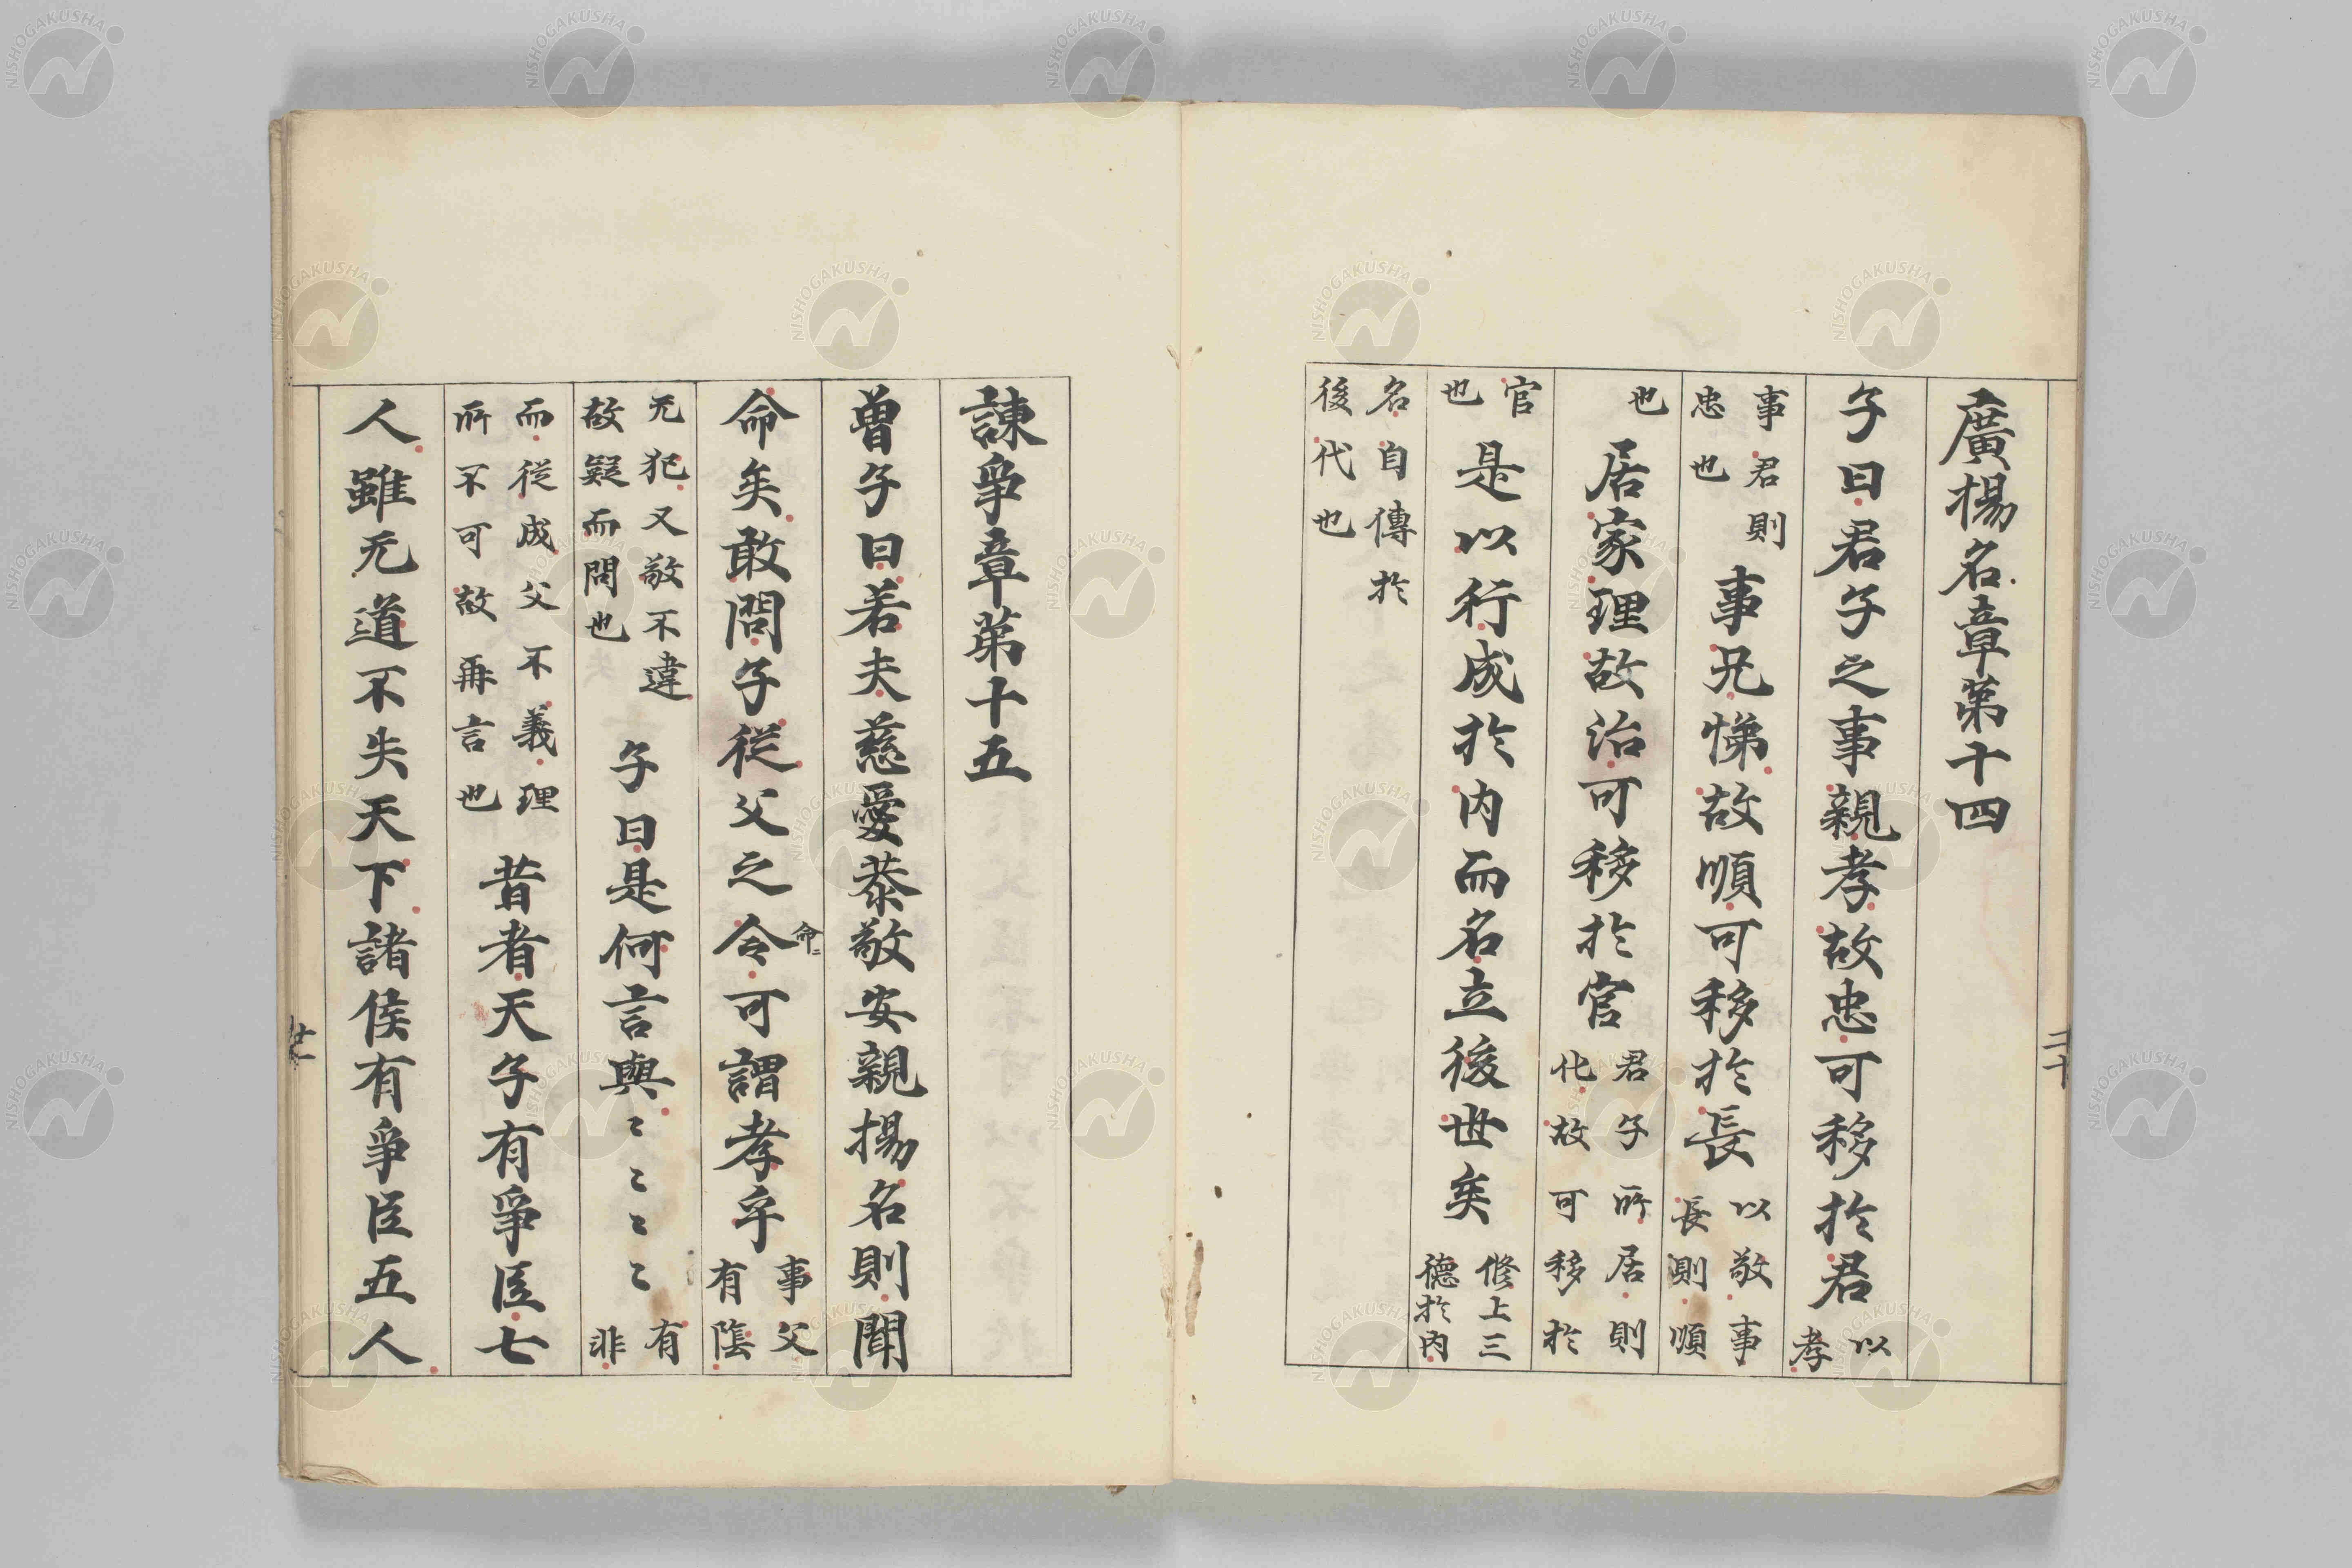 二十
廣揚名章第十四
子曰君子之事親孝故忠可移於君以孝
事君則忠也事兄悌故順可移於長以敬事長則順
也居家理故治可移於官君子所居則化故可移於
官也是以行成於内而名立後世矣修上三德於内
名自傳於後代也
諫爭章第十五
曾子曰若夫慈愛恭敬安親揚名則聞
命矣敢問子從父之令可謂孝乎事父有隂
命二
无犯又敬不違故疑而問也子曰是何言與〻〻〻〻有非
而從成父不義理所不可故再言也昔者天子有爭臣七
人雖无道不失天下諸侯有爭臣五人
廿一
NISHOGAKUSHA